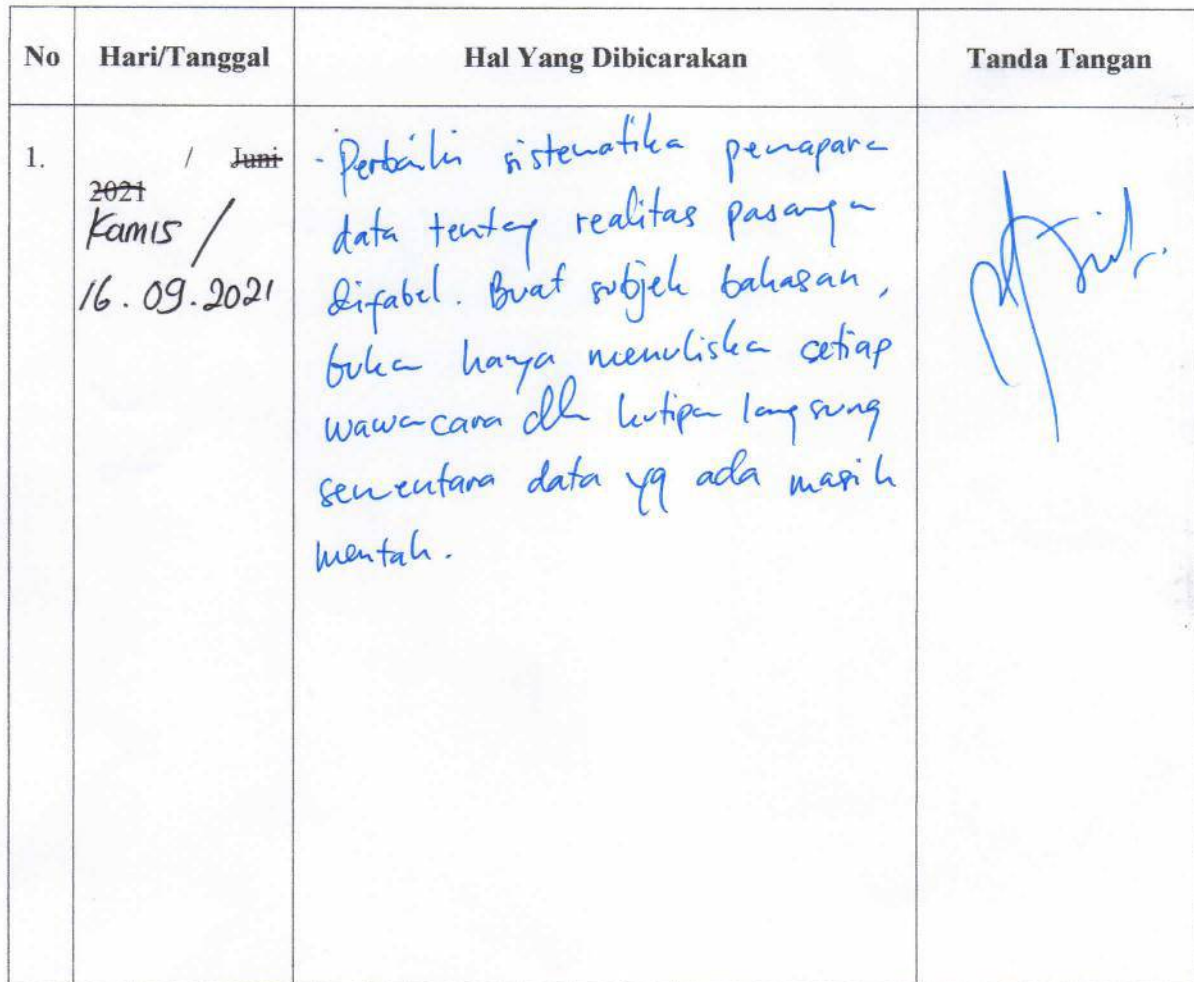 No Hari/Tanggal Hal Yang Dibicarakan Tanda Tangan
1. / Juni
2021
Kamis /
16.09.2021
- Perbaiki sistematika pemapara
data tentag realitas pasanga
difabel. Buat subjek bahasan,
buka hanya menuliska setiap
wawancara dlm kutipa langsung
sementara data yg ada masih
mentah.